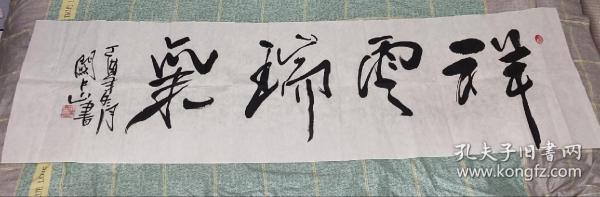 祥雲瑞氣
丁酉年
書
孔夫子旧書网
www.kongfz.com